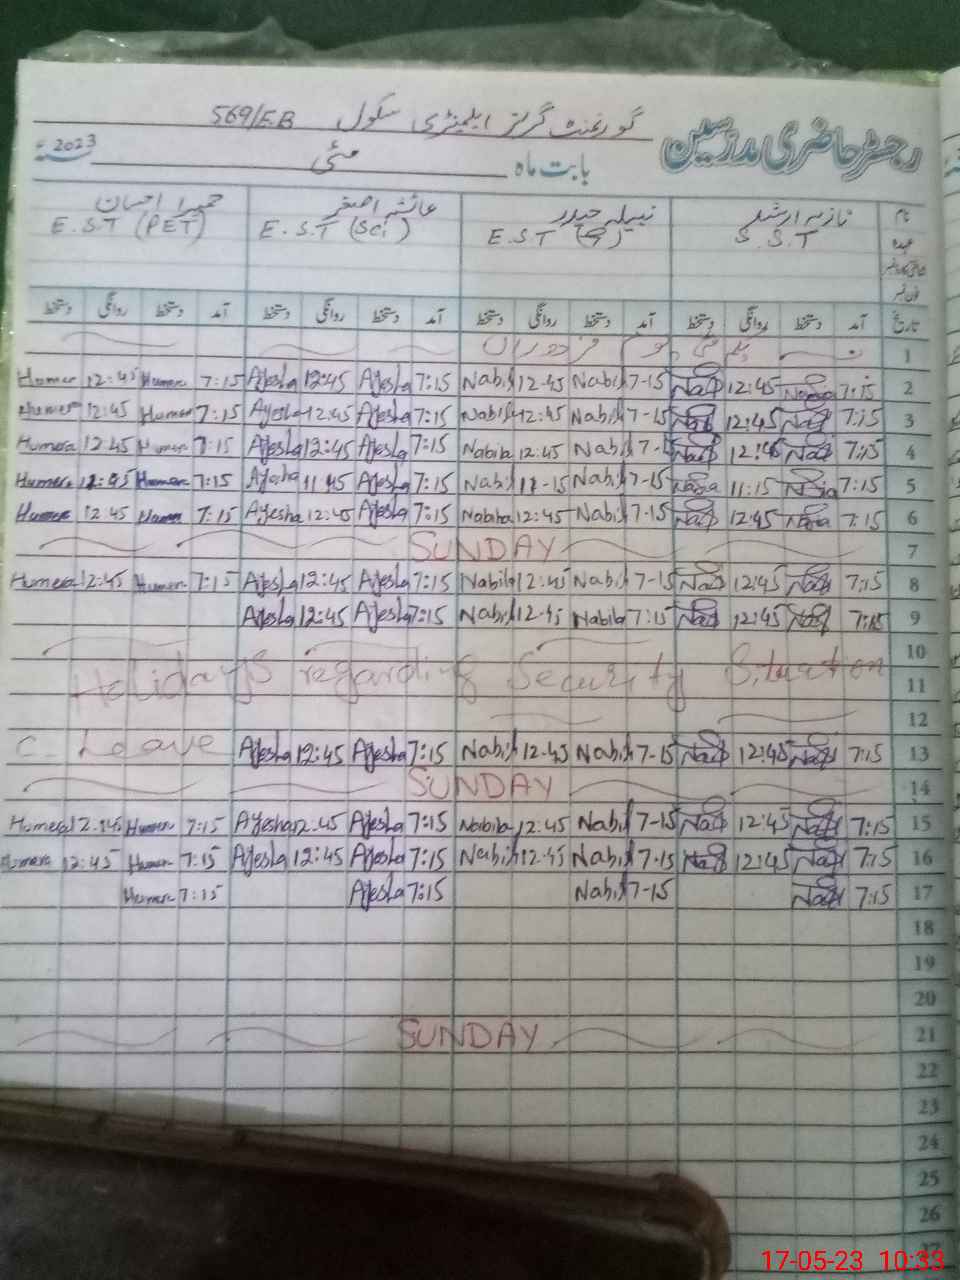 رجسٹر حاضری مدرسین گورنمنٹ گرلز ایلیمنٹری سکول 569/EB
بابت ماہ مئی 2023ء
نام نازیہ ارشد نبیلہ حیدر عائشہ اصغر حمیرا احسان
عہدہ S.S.T E.S.T E.S.T (Sci) E.S.T (PET)
شناختی کارڈ نمبر
فون نمبر
تاریخ آمد دستخط روانگی دستخط آمد دستخط روانگی دستخط آمد دستخط روانگی دستخط آمد دستخط روانگی دستخط
1 یکم مئی یوم مزدوراں
Humer 12:45 Humera 7:15 Ayesha 12:45 Ayesha 7:15 Nabil 12-45 Nabil 7-15 12:45 Nazia 7:15 2
Humera 12:45 Humer 7:15 Ayesha 12:45 Ayesha 7:15 Nabil 12:45 Nabil 7-15 12:45 7:15 3
Humera 12:45 Humera 7:15 Ayesha 12:45 Ayesha 7:15 Nabila 12:45 Nabil 7-15 12:45 7:15 4
Humera 7:15 Ayesha 11:45 Ayesha 7:15 Nabil 11-15 Nabil 7-15 Nazia 11:15 Nazia 7:15 5
Humera 12:45 Humer 7:15 Ayesha 12:45 Ayesha 7:15 Nabila 12:45 Nabil 7-15 12:45 Nazia 7:15 6
SUNDAY 7
Humera 12:45 Humera 7:15 Ayesha 12:45 Ayesha 7:15 Nabila 12:45 Nabil 7-15 12:45 7:15 8
Ayesha 12:45 Ayesha 7:15 Nabil 12-45 Nabila 7:15 12:45 7:15 9
10
Holidays regarding Security Situation 11
12
C. Leave Ayesha 12:45 Ayesha 7:15 Nabil 12-45 Nabil 7-15 12:45 7:15 13
SUNDAY 14
Humera 12:45 Humera 7:15 Ayesha 12:45 Ayesha 7:15 Nabila 12:45 Nabil 7-15 12:45 7:15 15
Humera 12:45 Humera 7:15 Ayesha 12:45 Ayesha 7:15 Nabila 12:45 Nabil 7-15 12:45 7:15 16
Humera 7:15 Ayesha 7:15 Nabil 7-15 7:15 17
18
19
20
SUNDAY 21
22
23
24
25
26
27
17-05-23 10:33